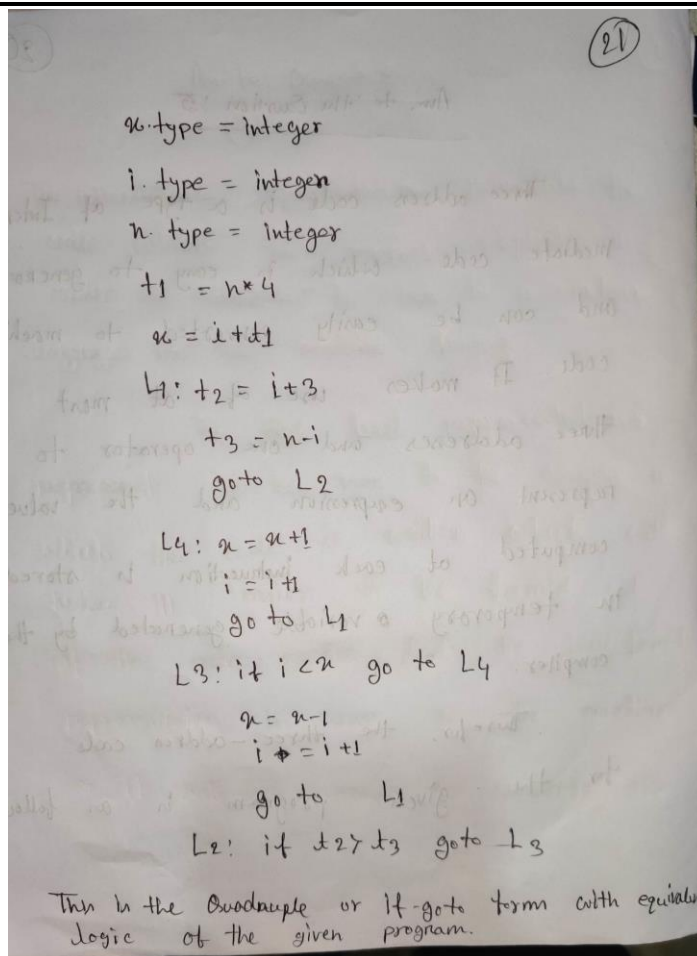 21
x.type = integer
i. type = integer
n. type = integer
t1 = n*4
x = i+t1
L1: t2 = i+3
t3 = n-i
goto L2
L4: x = x+1
i = i+1
go to L1
L3: if i<x go to L4
x = x-1
i = i+1
go to L1
L2: if t2> t3 goto L3
This is the Quadruple or if-goto form with
logic of the given program.